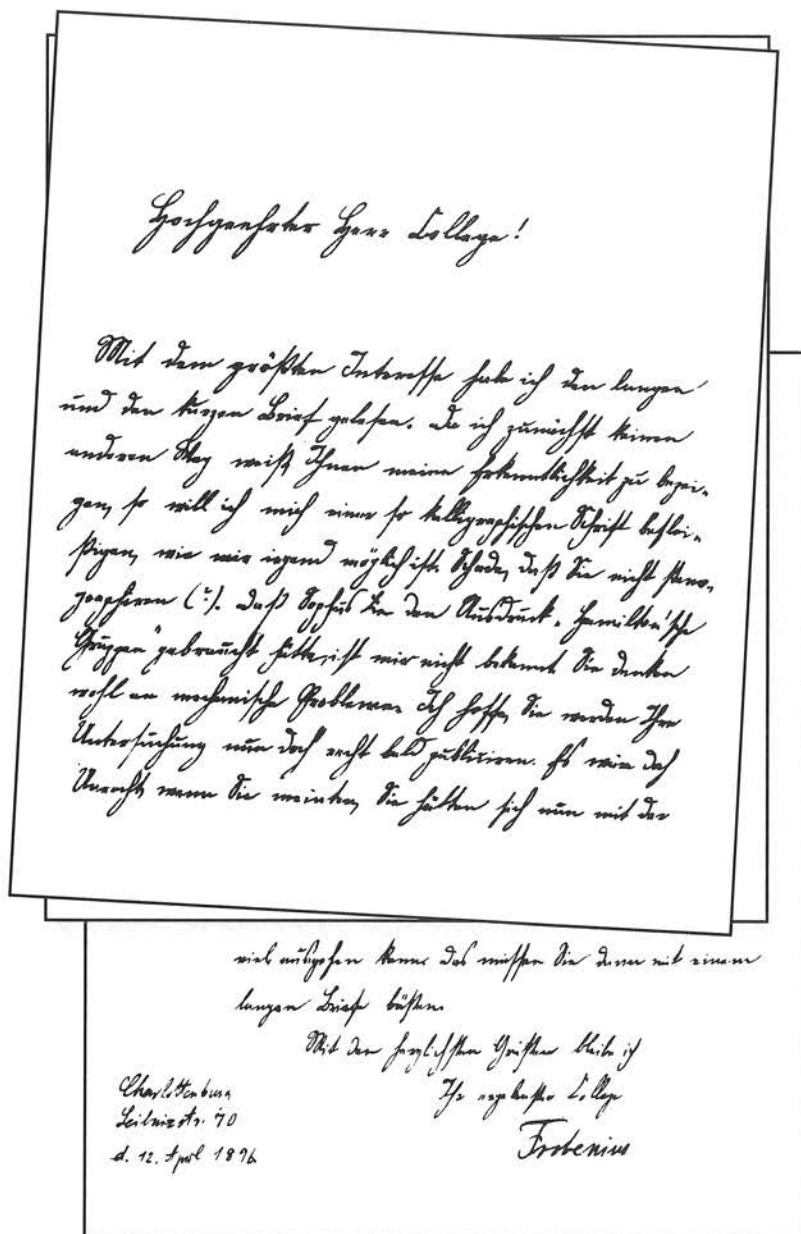 Hochgeehrter Herr College!
Mit dem größten Interesse habe ich den langen
und den kurzen Brief gelesen. Da ich zunächst keinen
anderen Weg weiß, Ihnen meine Erkenntlichkeit zu bezei-
gen, so will ich mich einer so kalligraphischen Schrift beflei-
ßigen, wie mir irgend möglich ist. Schade, daß Sie nicht steno-
graphiren (:). Daß Sophus Lie den Ausdruck „Hamilton'sche
Gruppen" gebraucht hätte, ist mir nicht bekannt. Sie denken
wohl an mechanische Probleme. Ich hoffe, Sie werden Ihre
Untersuchung nun doch recht bald publiciren. Es wäre doch
Unrecht, wenn Sie meinten, Sie hätten sich nun mit der
viel ausgehen kann. Das müssen Sie dann mit einem
langen Briefe büßen.
Mit den herzlichsten Grüßen bleibe ich
Ihr ergebenster College
Frobenius
Charlottenburg
Leibnizstr. 70
d. 12. April 1896